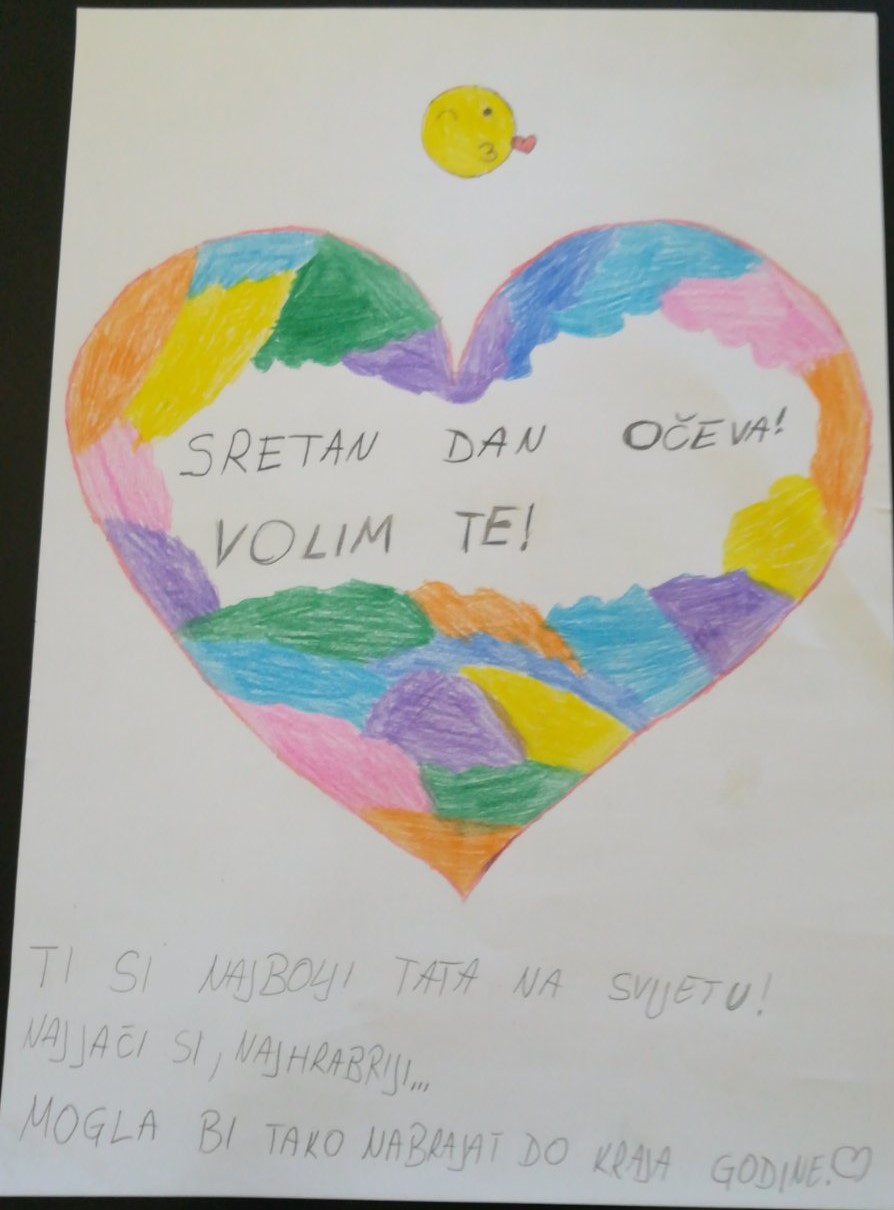 SRETAN DAN OČEVA!
VOLIM TE!
TI SI NAJBOLJI TATA NA SVIJETU!
NAJJAČI SI, NAJHRABRIJI...
MOGLA BI TAKO NABRAJAT DO KRAJA GODINE.♡